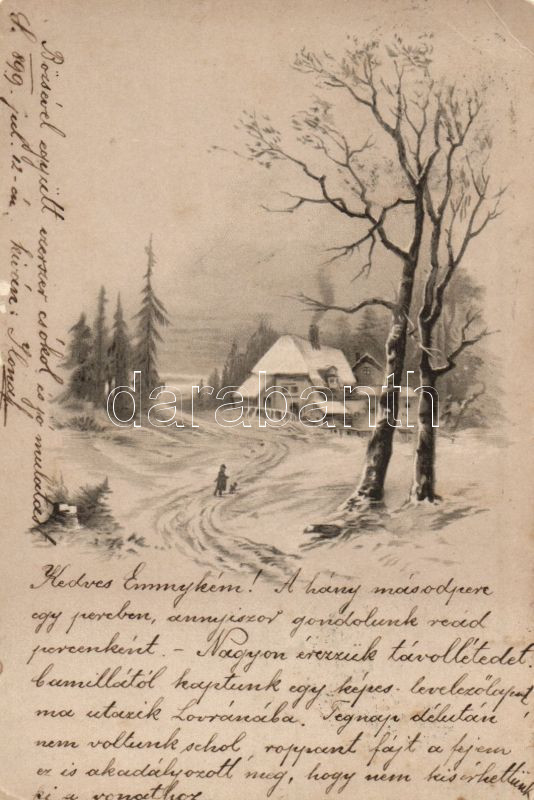 Kedves Emmykém! A hány másodpercz
egy perczben, annyiszor gondolunk reád
perczenként. - Nagyon érezzük távollétedet.
Camillától kaptunk egy képes levelezőlapot
ma utazik Lovránába. Tegnap délután
nem voltunk sehol, roppant fájt a fejem
ez is akadályozott meg, hogy nem kisérhettünk
ki a vonathoz
Bözsével együtt ezerszer csókol és jó mulatást
kiván: Ilonod
S. 899. jul. 12-én.
darabanth